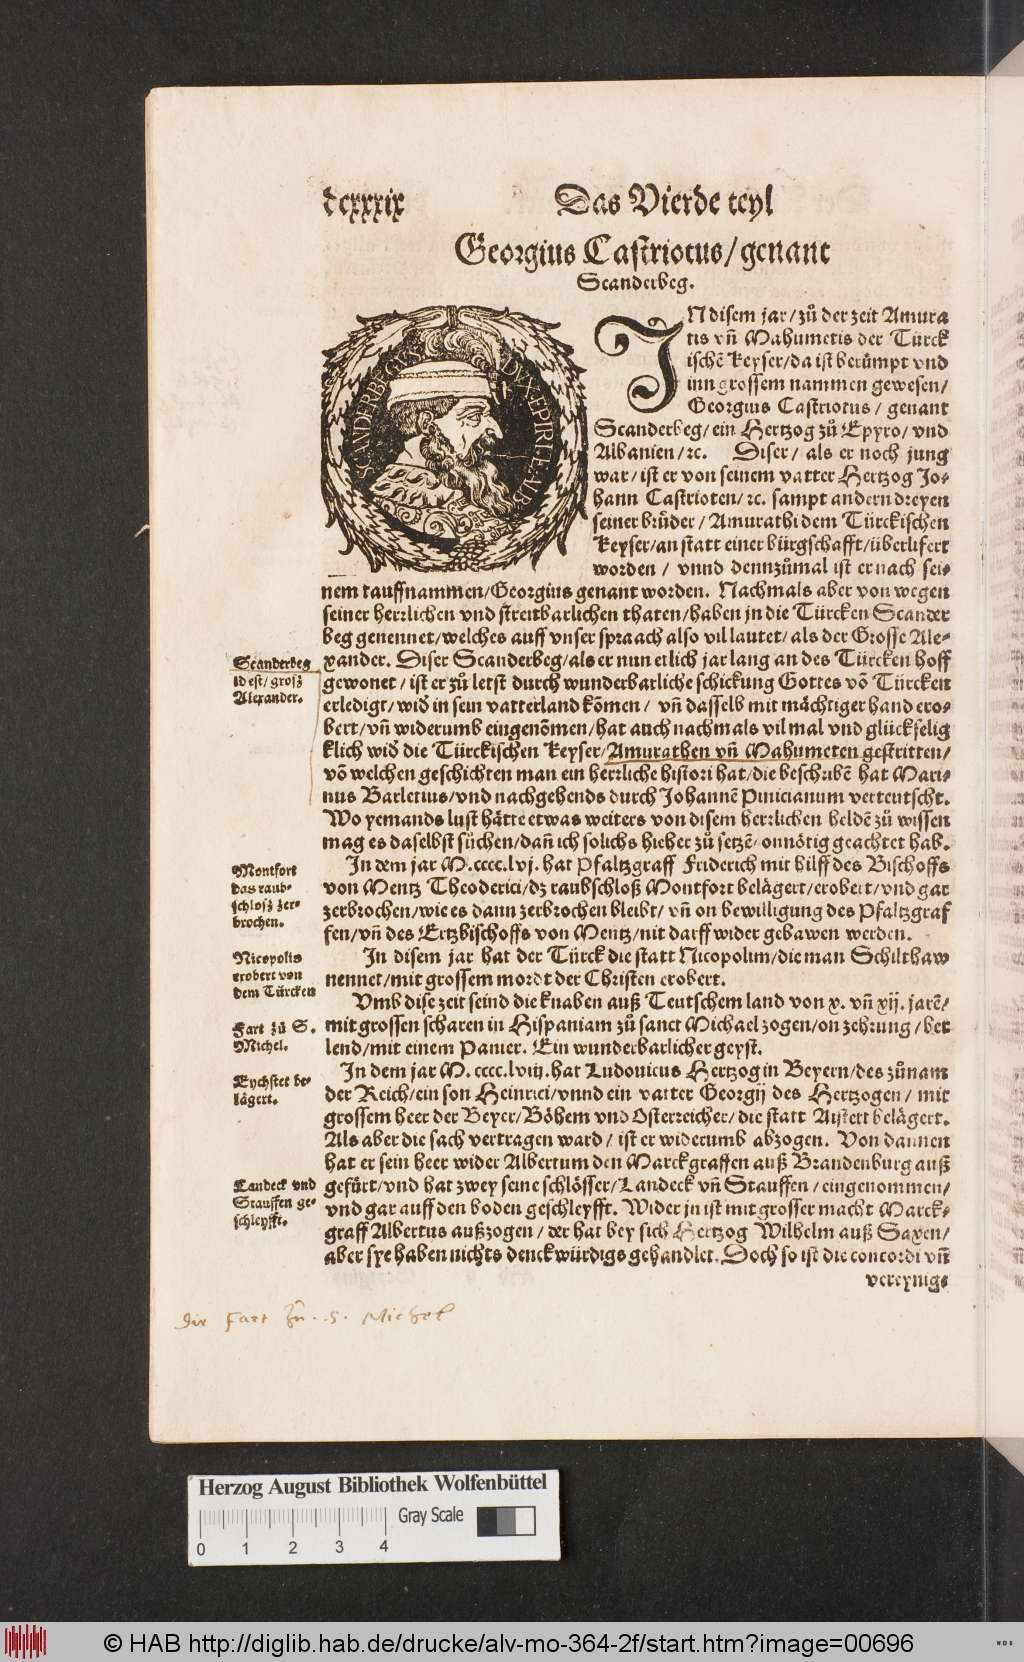 dcxxxix
Das Vierde teyl
Georgius Castriotus/genant
Scanderbeg.
SCANDERBEGVS. DVX. EPIRI. E. ALB
INdisem jar/zů der zeit Amura
tis vñ Mahumetis der Türck
ischē Keyser/da ist berůmpt vnd
inn grossem nammen gewesen/
Georgius Castriotus/ genant
Scanderbeg/ein Hertzog zů Epyro/vnd
Albanien/ꝛc. Diser/ als er noch jung
war/ist er von seinem vatter Hertzog Jo-
hann Castrioten/ꝛc. sampt andern dreyen
seiner brůder/Amurathi dem Türckischen
Keyser/an statt einer bürgschafft/überlifert
worden/ vnnd dennzůmal ist er nach sei-
nem tauffnammen/Georgius genant worden. Nachmals aber von wegen
seiner herrlichen vnd streitbarlichen thaten/haben jn die Türcken Scander
beg genennet/welches auff vnser spraach also vil lautet/als der Grosse Ale-
xander. Diser Scanderbeg/als er nun etlich jar lang an des Türcken hoff
Scanderbeg
id est/groß
Alexander.
gewonet/ist er zů letst durch wunderbarliche schickung Gottes vō Türcken
erledigt/wid̄ in sein vatterland kōmen/ vñ dasselb mit mächtiger hand ero-
bert/vñ widerumb eingenōmen/hat auch nachmals vil mal vnd glückselig
klich wid̄ die Türckischen Keyser/Amurathen vñ Mahumeten gestritten/
vō welchen geschichten man ein herrliche histori hat/die beschribē hat Mari-
nus Barletius/vnd nachgehends durch Johannē Pinicianum verteutscht.
Wo yemands lust hätte etwas weiters von disem herrlichen heldē zů wissen
mag es daselbst sůchen/dañ ich solichs hieher zů setzē/onnötig geachtet hab.
Montfort
das raub-
schloß zer-
brochen.
In dem jar M.cccc.lvj. hat Pfaltzgraff Friderich mit hilff des Bischoffs
von Mentz Theoderici/dz raubschloß Montfort belägert/erobert/vnd gar
zerbrochen/wie es dann zerbrochen bleibt/ vñ on bewilligung des Pfaltzgraf
fen/vñ des Ertzbischoffs von Mentz/nit darff wider gebawen werden.
Nicopolis
erobert von
dem Türcken
In disem jar hat der Türck die statt Nicopolim/die man Schilthaw
nennet/mit grossem mordt der Christen erobert.
Vmb dise zeit seind die knaben auß Teutschem land von x. vñ xij. jarē/
Fart zů S.
Michel.
mit grossen scharen in Hispaniam zů sanct Michael zogen/on zehrung/bet
lend/mit einem Panier. Ein wunderbarlicher geyst.
Eychstet be-
lägert.
In dem jar M.cccc.lviij. hat Ludouicus Hertzog in Beyern/des zůnam
der Reich/ein son Heinrici/vnnd ein vatter Georgij des Hertzogen/ mit
grossem heer der Beyer/Böhem vnd Osterreicher/die statt Aistett belägert.
Als aber die sach vertragen ward/ ist er widerumb abzogen. Von dannen
hat er sein heer wider Albertum den Marckgraffen auß Brandenburg auß
Landeck vnd
Stauffen ge-
schleyfft.
gefürt/vnd hat zwey seine schlösser/Landeck vñ Stauffen/eingenommen/
vnd gar auff den boden geschleyfft. Wider jn ist mit grosser macht Marck-
graff Albertus außzogen/der hat bey sich Hertzog Wilhelm auß Saxen/
aber sye haben nichts denckwürdigs gehandlet. Doch so ist die concordi vñ
vereynig-
die Fart Zu. S. Michel
Herzog August Bibliothek Wolfenbüttel
Gray Scale
0 1 2 3 4
© HAB http://diglib.hab.de/drucke/alv-mo-364-2f/start.htm?image=00696